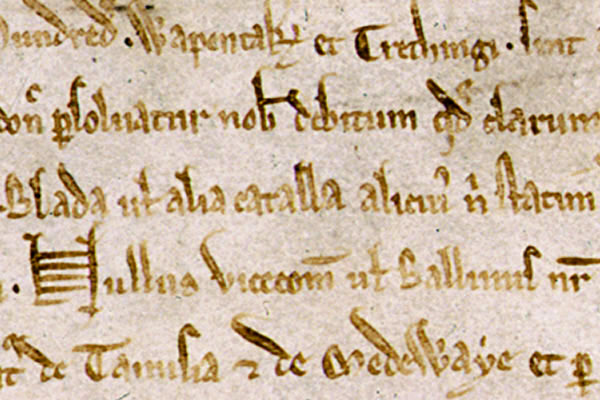 Hundred̉. Wapentak̉ et Trethingi. sint
don̉ p̱soluatur nob̵ debitum qd̉ clarum
Blada ul̵ alia catalla alicuiꝰ n̄ statim
. Nullus vicecom̄ ul̵ Balliuus nr̄
de Tamisia ⁊ de Medewaye et p̱